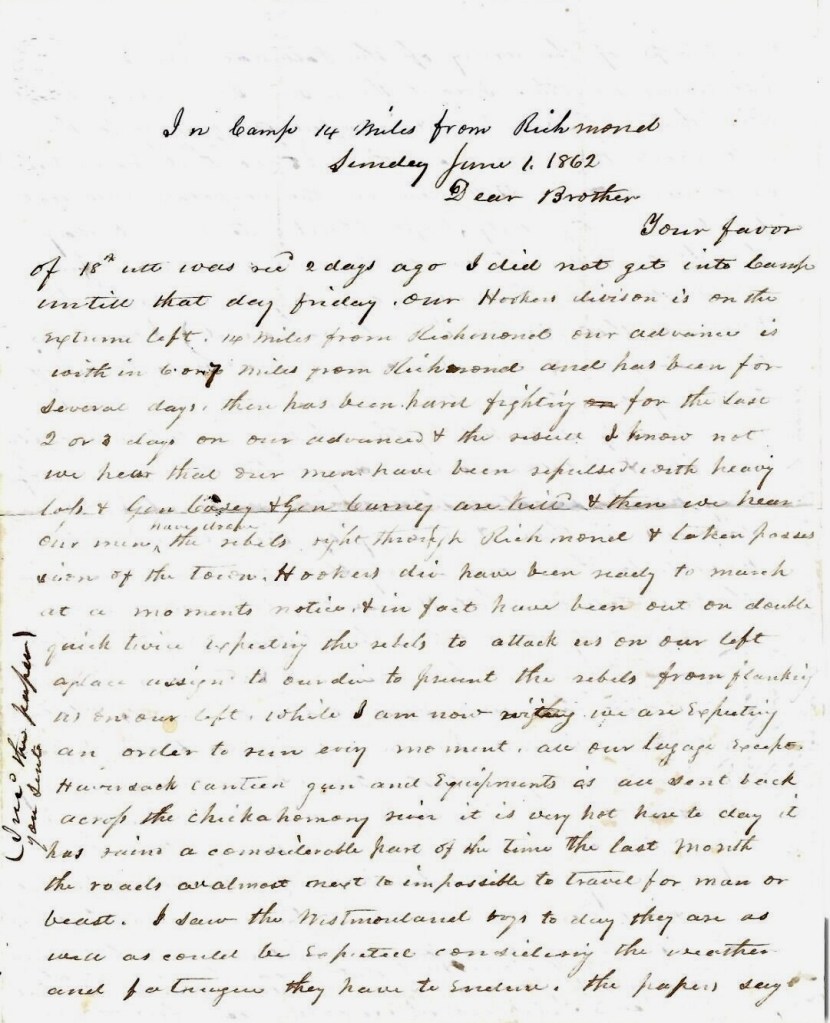 In Camp 14 Miles from Richmond
Sunday June 1. 1862
Dear Brother
Your favor
of 18th ult was recd 2 days ago I did not get into Camp
untill that day friday. our Hookers divison is on the
extreme left. 14 Miles from Richmond our advance is
with in 6 or 7 Miles from Richmond and has been for
several days. then has been hard fighting for the last
2 or 3 days on our advanced & the result I know not
we hear that our men have been repulsed with heavy
loss & Gen Casey & Gen Carney are killd & then we hear
our men have drove the rebels right through Richmond & taken posses
sion of the town. Hookers div have been ready to march
at a moments notice. & in fact have been out on double
quick twice expecting the rebels to attack us on our left
a place assign to our div to prevent the rebels from flanking
us on our left. while I am now writing we are Expecting
an order to run evry moment. all our lugage Except
Haversack canteen gun and Equipments is all sent back
across the chickahomony river it is very hot here to day it
has rains a considerable part of the time the last Month
the roads ar almost next to impossible to travel for man or
beast. I saw the Westmorland boys to day they are as
well as could be Expected considering the weather
and fatneague they have to Endure. the papers says
(I recd the paper
you sent)